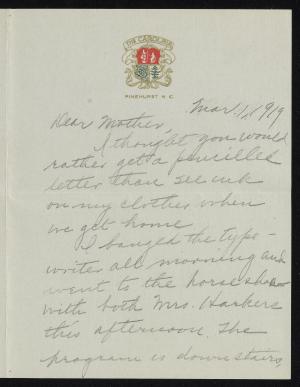 THE CAROLINA
PINEHURST N.C.
Mar. 1, 1919
Dear Mother,
I thought you would
rather get a pencilled
letter than see ink
on my clothes when
we get home.
I banged the type-
writer all morning and
went to the horse show
with both Mrs. Harkers
this afternoon. The
program is downstairs,